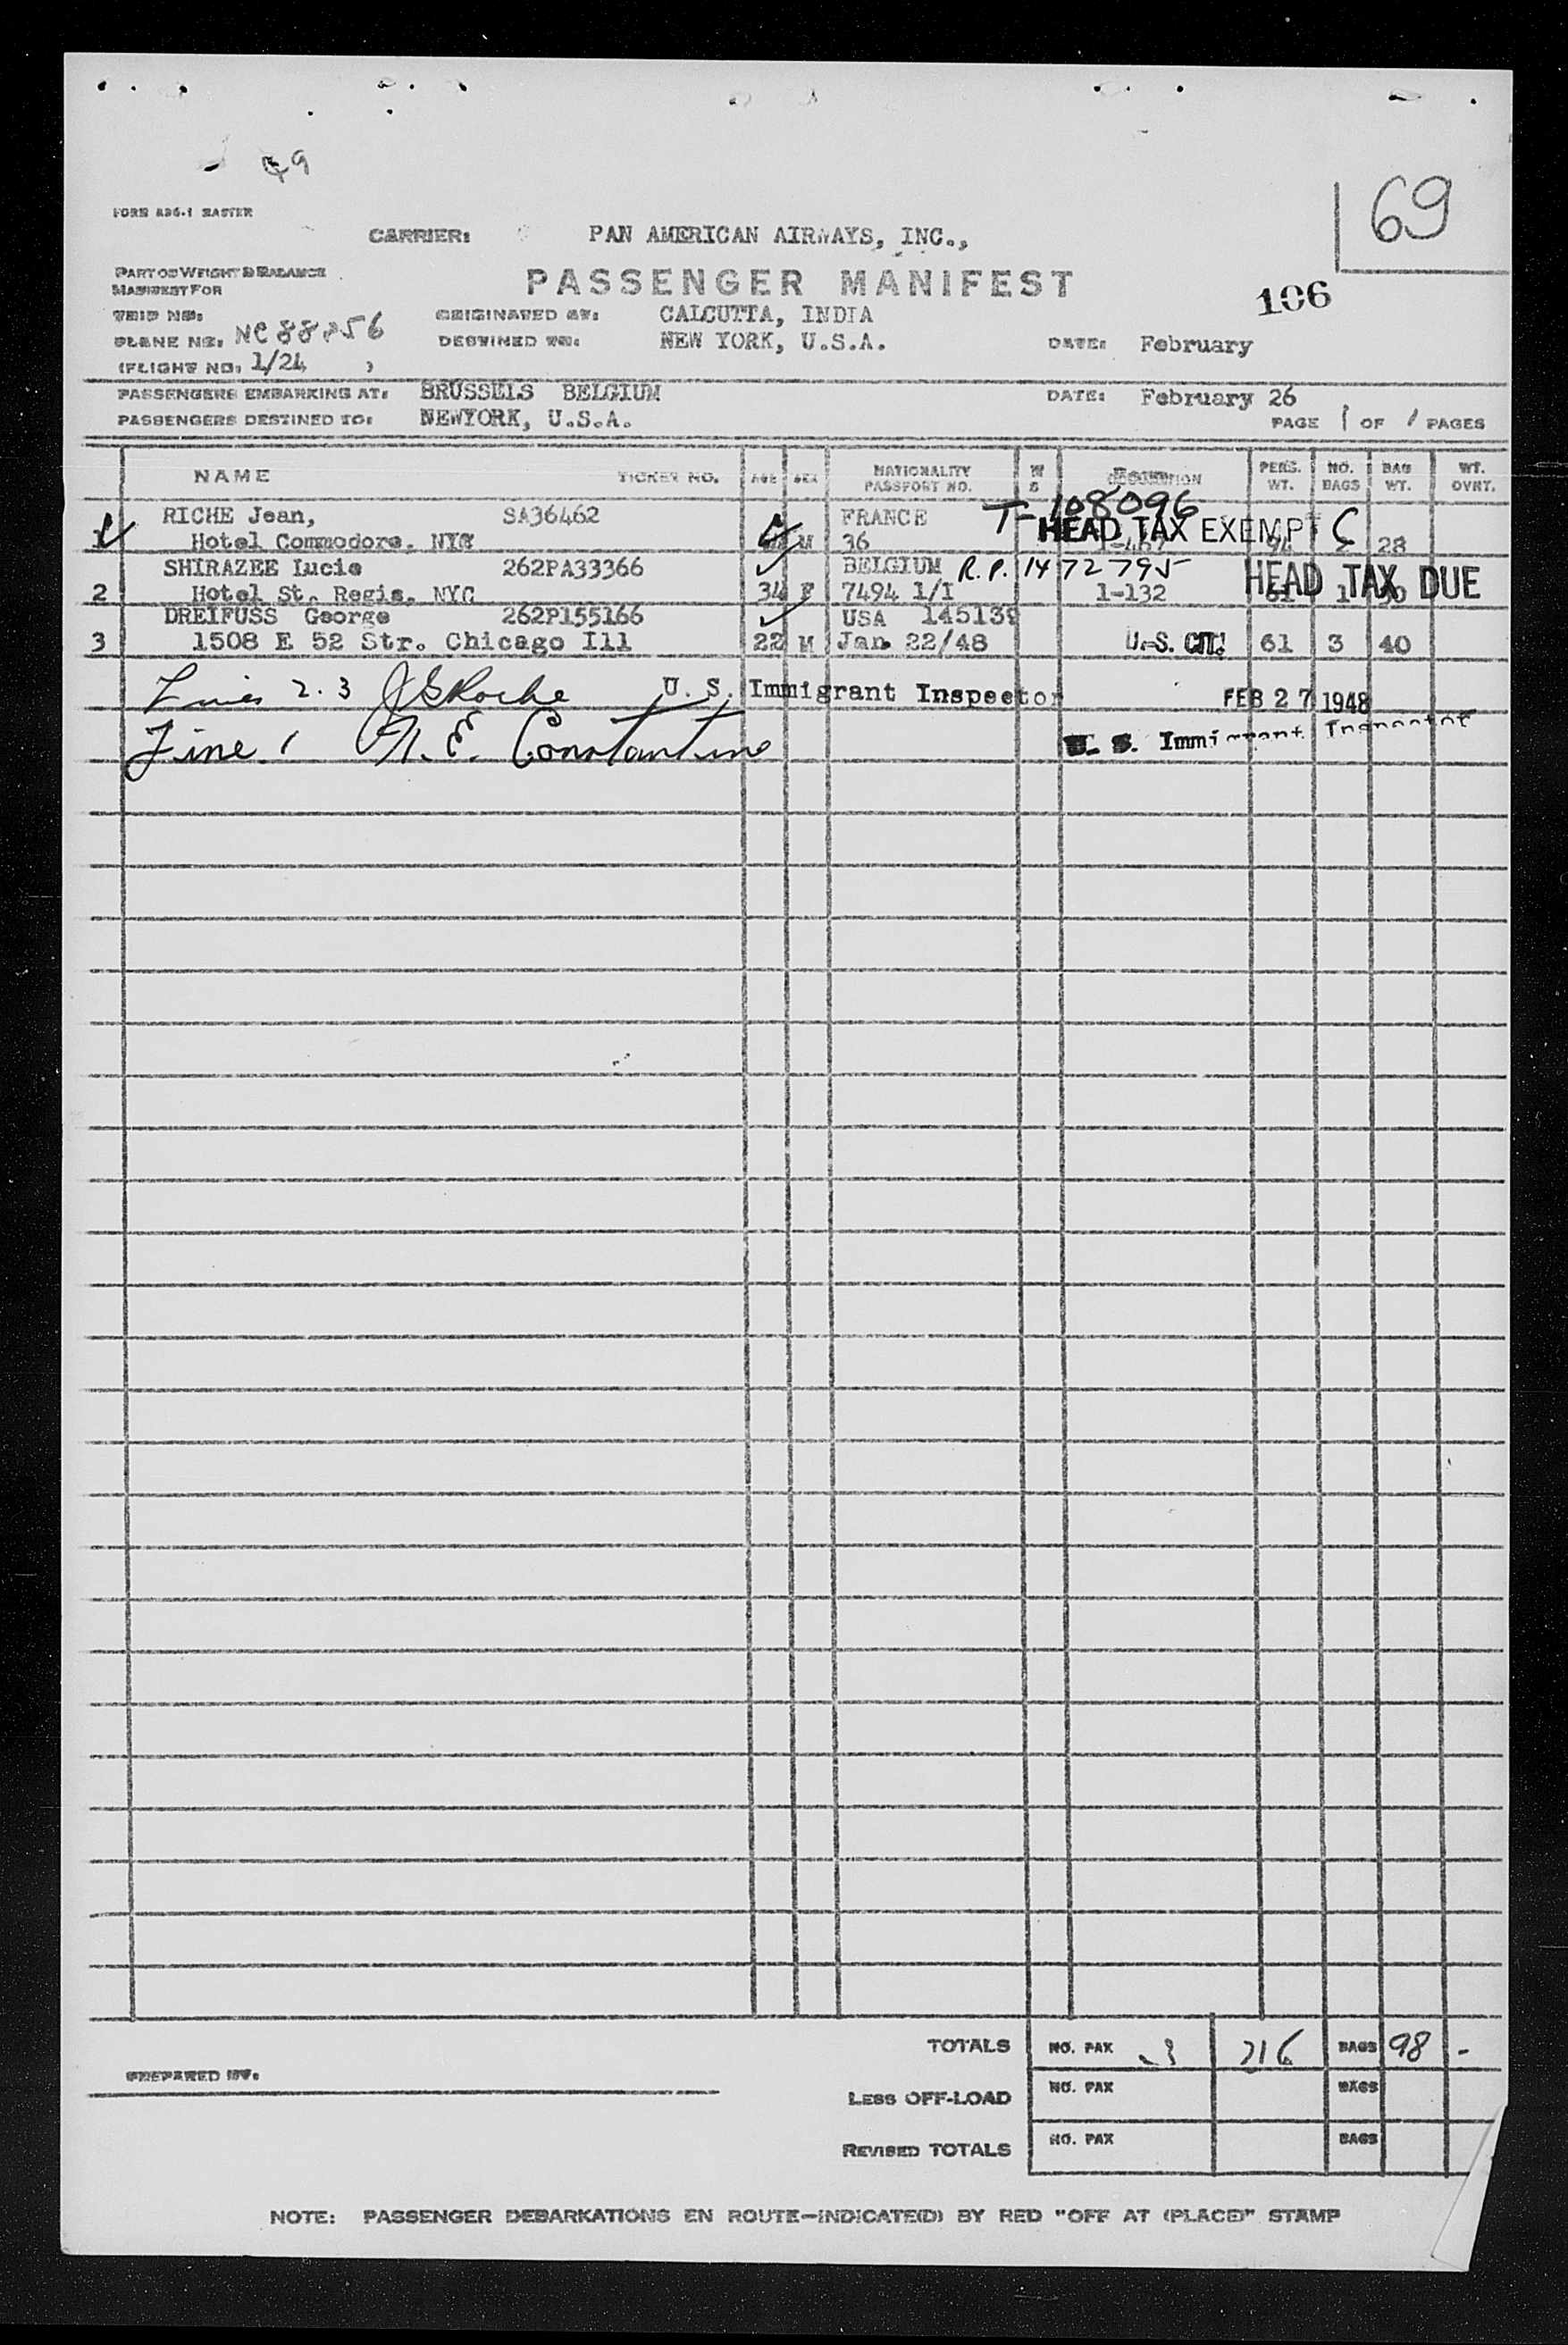 69
FORM
CARRIER: PAN AMERICAN AIRWAYS, INC.,
PART OF WEIGHT & BALANCE
MANIFEST FOR
PASSENGER MANIFEST
106
TRIP NO:
ORIGINATED AT: CALCUTTA, INDIA
PLANE NO: NC 88856
DESTINED TO: NEW YORK, U.S.A.
DATE: February
(FLIGHT NO: 1/24 )
PASSENGERS EMBARKING AT: BRUSSELS BELGIUM DATE: February 26
PASSENGERS DESTINED TO: NEWYORK, U.S.A. PAGE 1 OF 1 PAGES
NAME TICKET NO. AGE SEX NATIONALITY PASSPORT NO. PERS. WT. NO. BAGS BAG WT. WT. OVRT.
RICHE Jean, SA36462 FRANCE T-108096
1 Hotel Commodore, NYC M 36 HEAD TAX EXEMPT C 94 28
SHIRAZEE Lucie 262PA33366 BELGIUM R.P. 1472795
2 Hotel St. Regis, NYC 34 F 7494 1/I 1-132 HEAD TAX DUE 61 1 30
DREIFUSS George 262P155166 USA 145139
3 1508 E 52 Str. Chicago Ill 22 M Jan 22/48 U.S. CIT. 61 3 40
Lines 2. 3 J G Roche U. S. Immigrant Inspector FEB 27 1948
Line 1 N. E. Constantine U. S. Immigrant Inspector
TOTALS NO. PAX 3 216 BAGS 98 -
PREPARED BY:
LESS OFF-LOAD NO. PAX BAGS
REVISED TOTALS NO. PAX BAGS
NOTE: PASSENGER DEBARKATIONS EN ROUTE—INDICATE(D) BY RED "OFF AT (PLACE)" STAMP